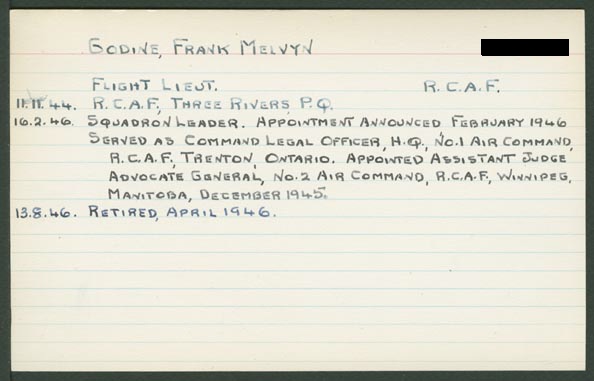 GODINE, FRANK MELVYN
FLIGHT LIEUT. R.C.A.F.
11.11.44. R.C.A.F., THREE RIVERS, P.Q.
16.2.46. SQUADRON LEADER. APPOINTMENT ANNOUNCED FEBRUARY 1946
SERVED AS COMMAND LEGAL OFFICER, H.Q., NO.1 AIR COMMAND,
R.C.A.F., TRENTON, ONTARIO. APPOINTED ASSISTANT JUDGE
ADVOCATE GENERAL, NO.2 AIR COMMAND, R.C.A.F., WINNIPEG,
MANITOBA, DECEMBER 1945.
13.8.46. RETIRED, APRIL 1946.